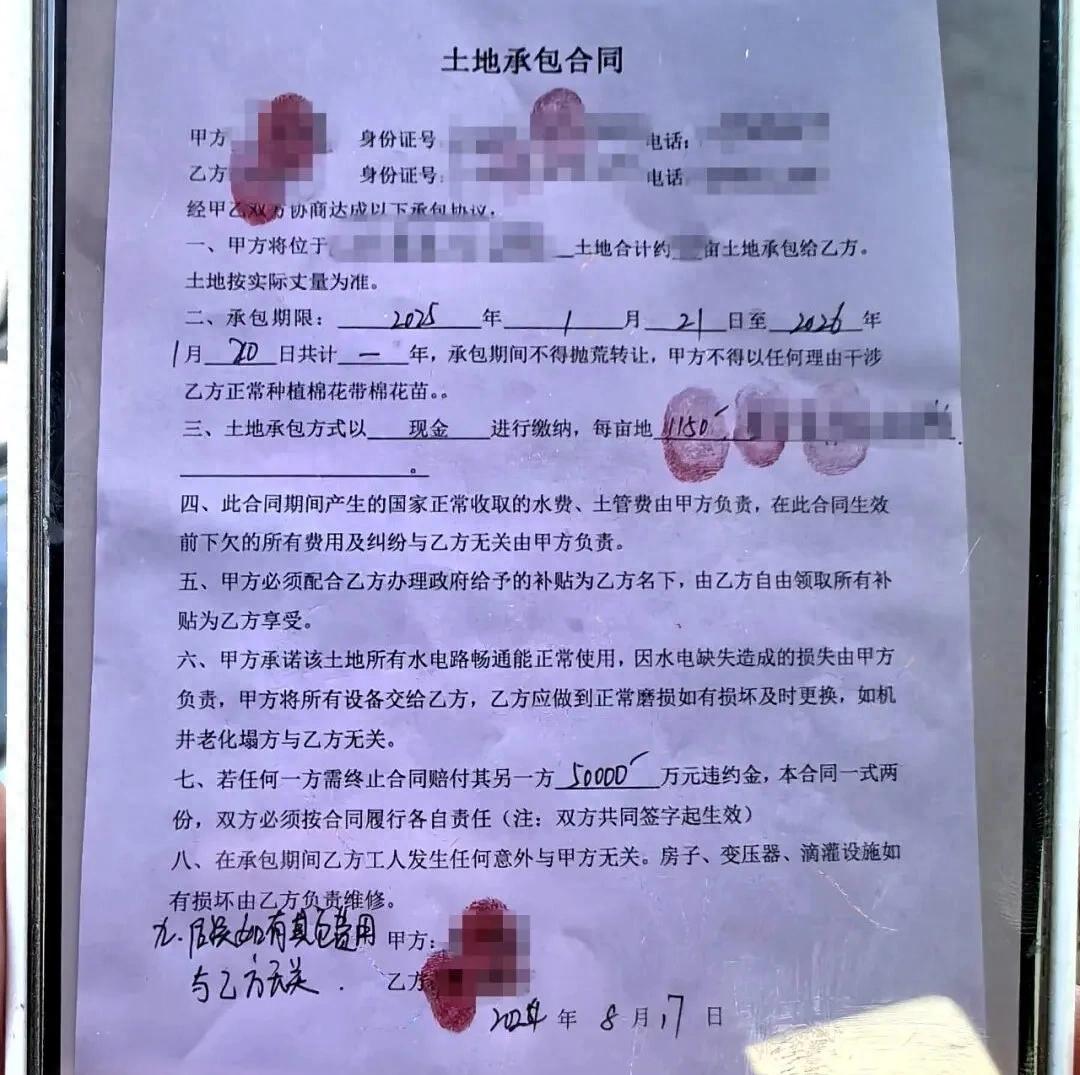 土地承包合同
甲方 身份证号 电话:
乙方 身份证号 电话
经甲乙双方协商达成以下承包协议,
一、甲方将位于 土地合计约 亩土地承包给乙方。
土地按实际丈量为准。
二、承包期限: 2025 年 1 月 21 日至 2026 年
1月 20 日共计 一 年，承包期间不得抛荒转让，甲方不得以任何理由干涉
乙方正常种植棉花带棉花苗。。
三、土地承包方式以 现金 进行缴纳，每亩地 1150
。
四、此合同期间产生的国家正常收取的水费、土管费由甲方负责，在此合同生效
前下欠的所有费用及纠纷与乙方无关由甲方负责。
五、甲方必须配合乙方办理政府给予的补贴为乙方名下，由乙方自由领取所有补
贴为乙方享受。
六、甲方承诺该土地所有水电路畅通能正常使用，因水电缺失造成的损失由甲方
负责，甲方将所有设备交给乙方，乙方应做到正常磨损如有损坏及时更换，如机
井老化塌方与乙方无关。
七、若任何一方需终止合同赔付其另一方 50000 万元违约金，本合同一式两
份，双方必须按合同履行各自责任（注：双方共同签字起生效）
八、在承包期间乙方工人发生任何意外与甲方无关。房子、变压器、滴灌设施如
有损坏由乙方负责维修。
九.后续如有其它费用
与乙方无关.
甲方:
乙方
2024 年 8 月 17 日